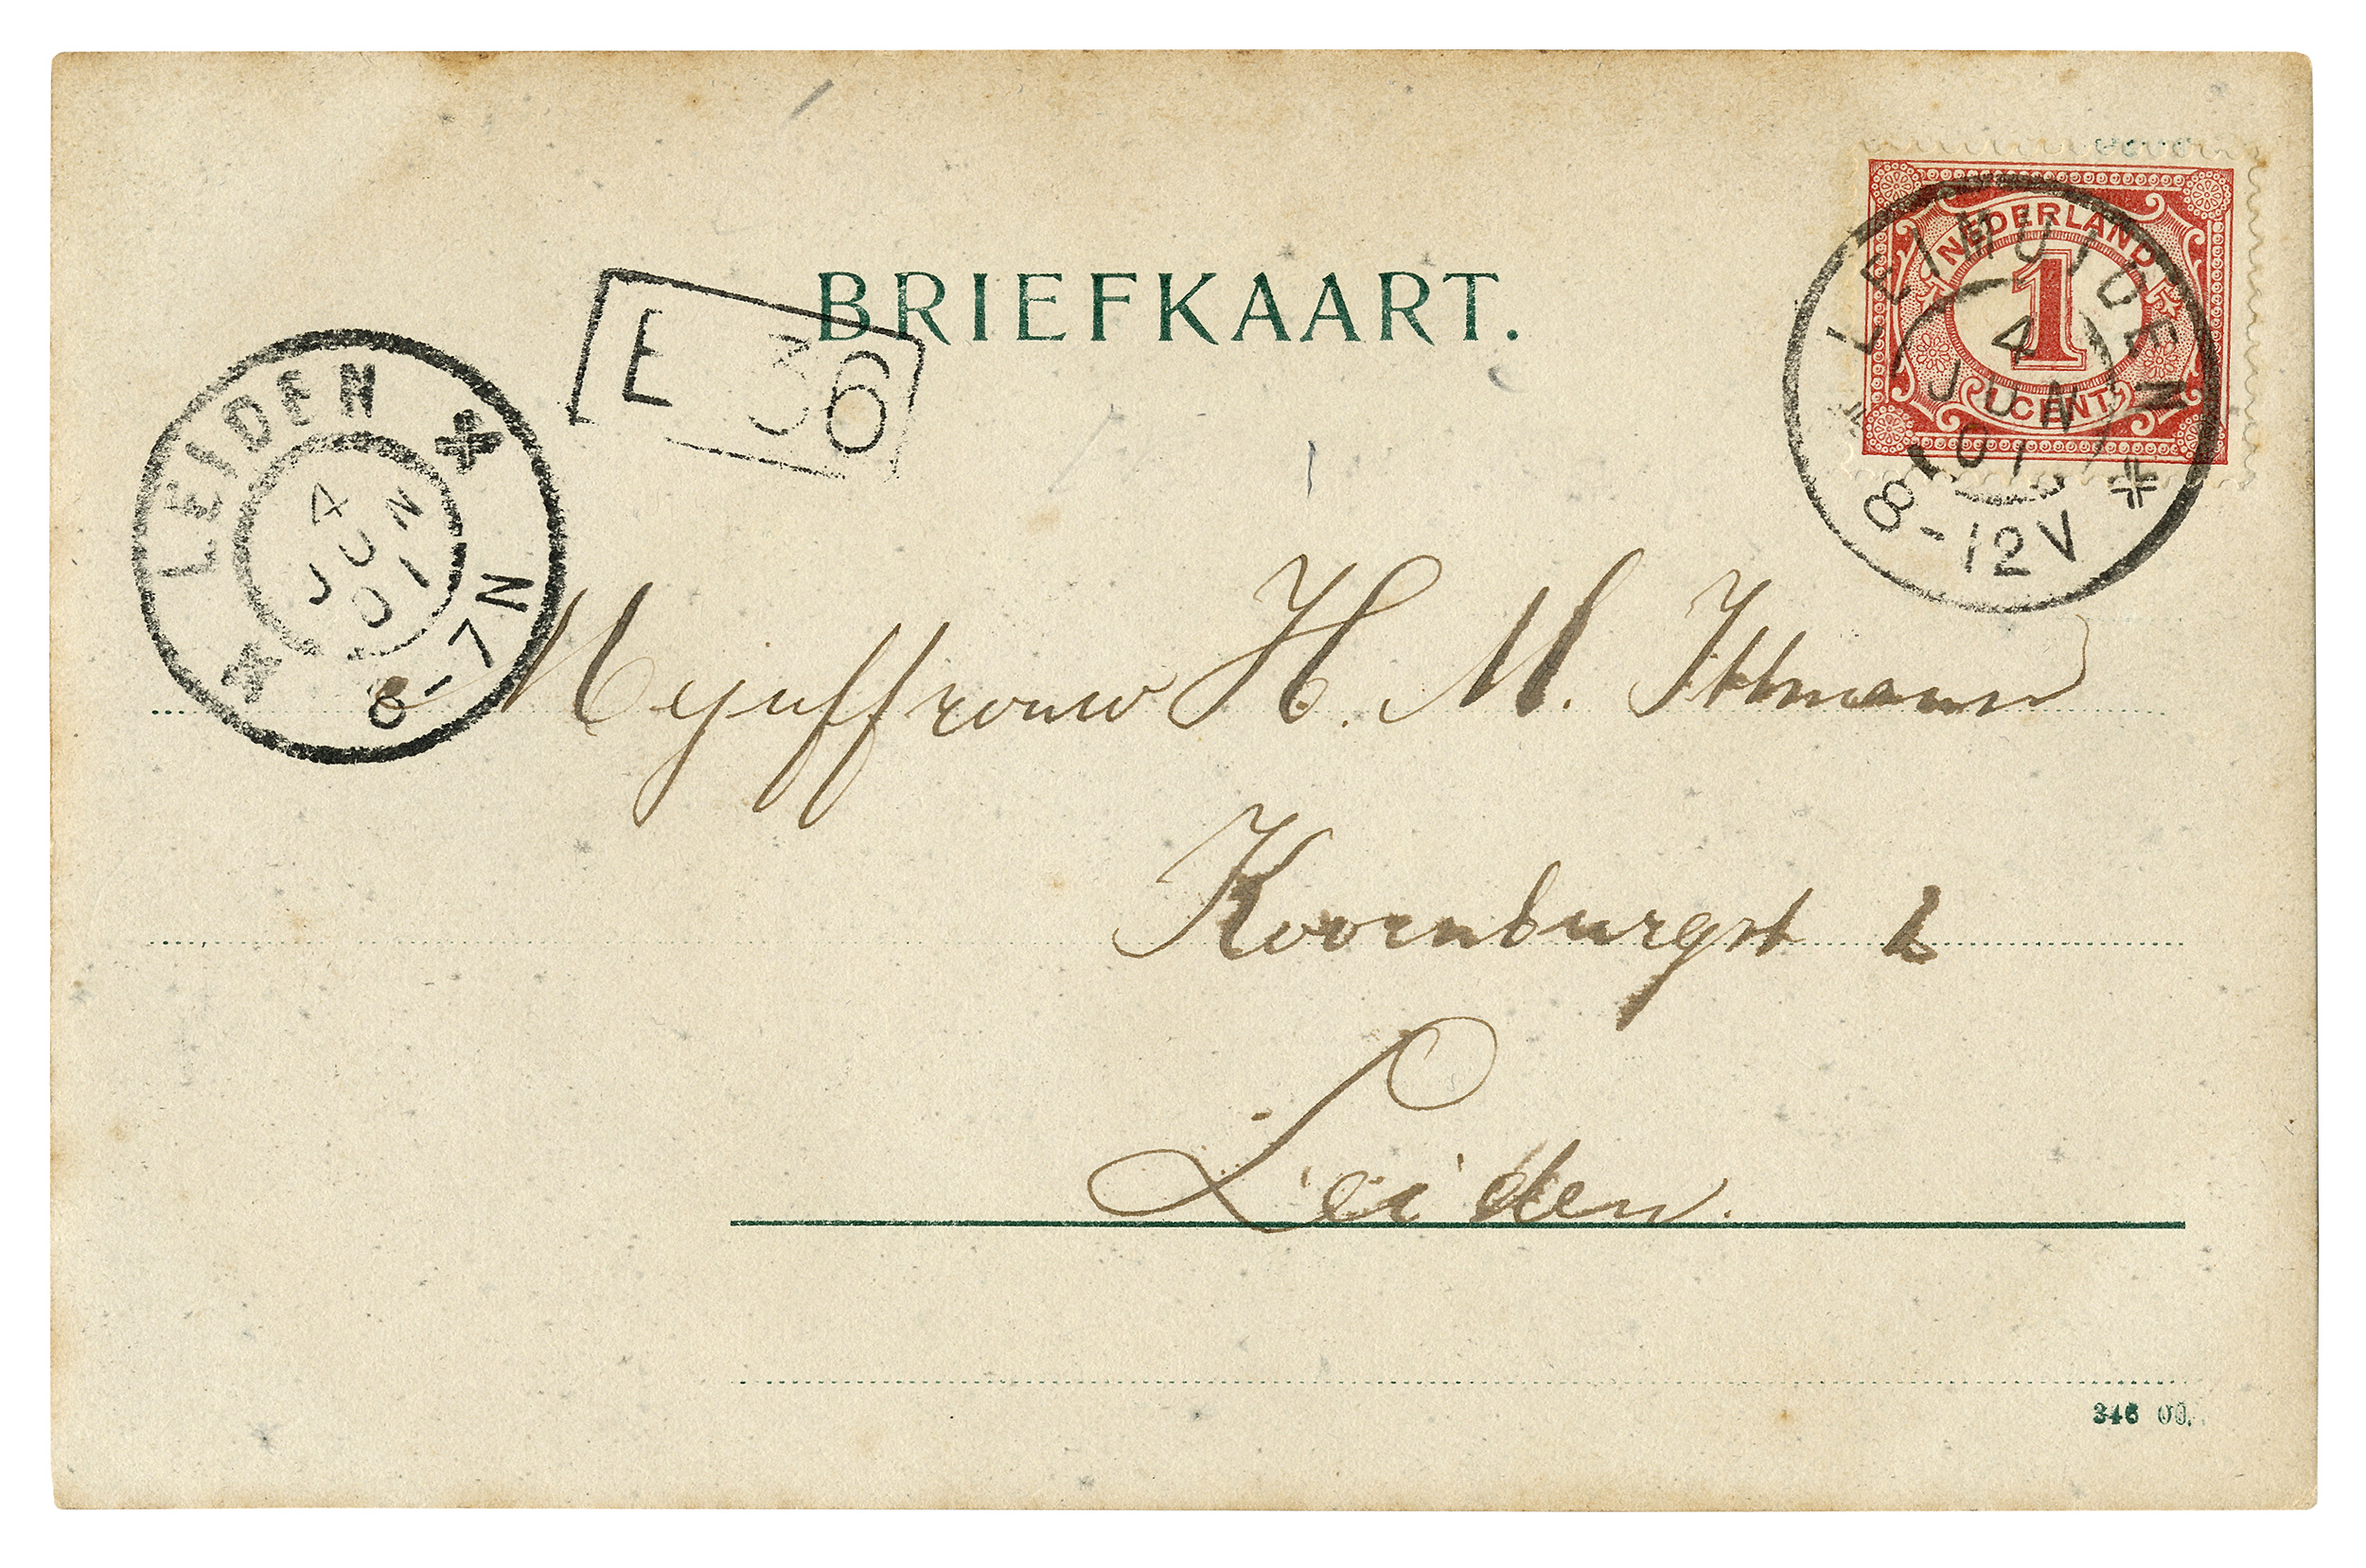 BRIEFKAART.
NEDERLAND
1
1 CENT
LEIMUIDEN
4
JUN
01
8-12V
E 36
LEIDEN
4
JUN
01
6-7N
Mejuffrouw H. M. Ittmann
Koornburgst 2
Leiden.
346 00.